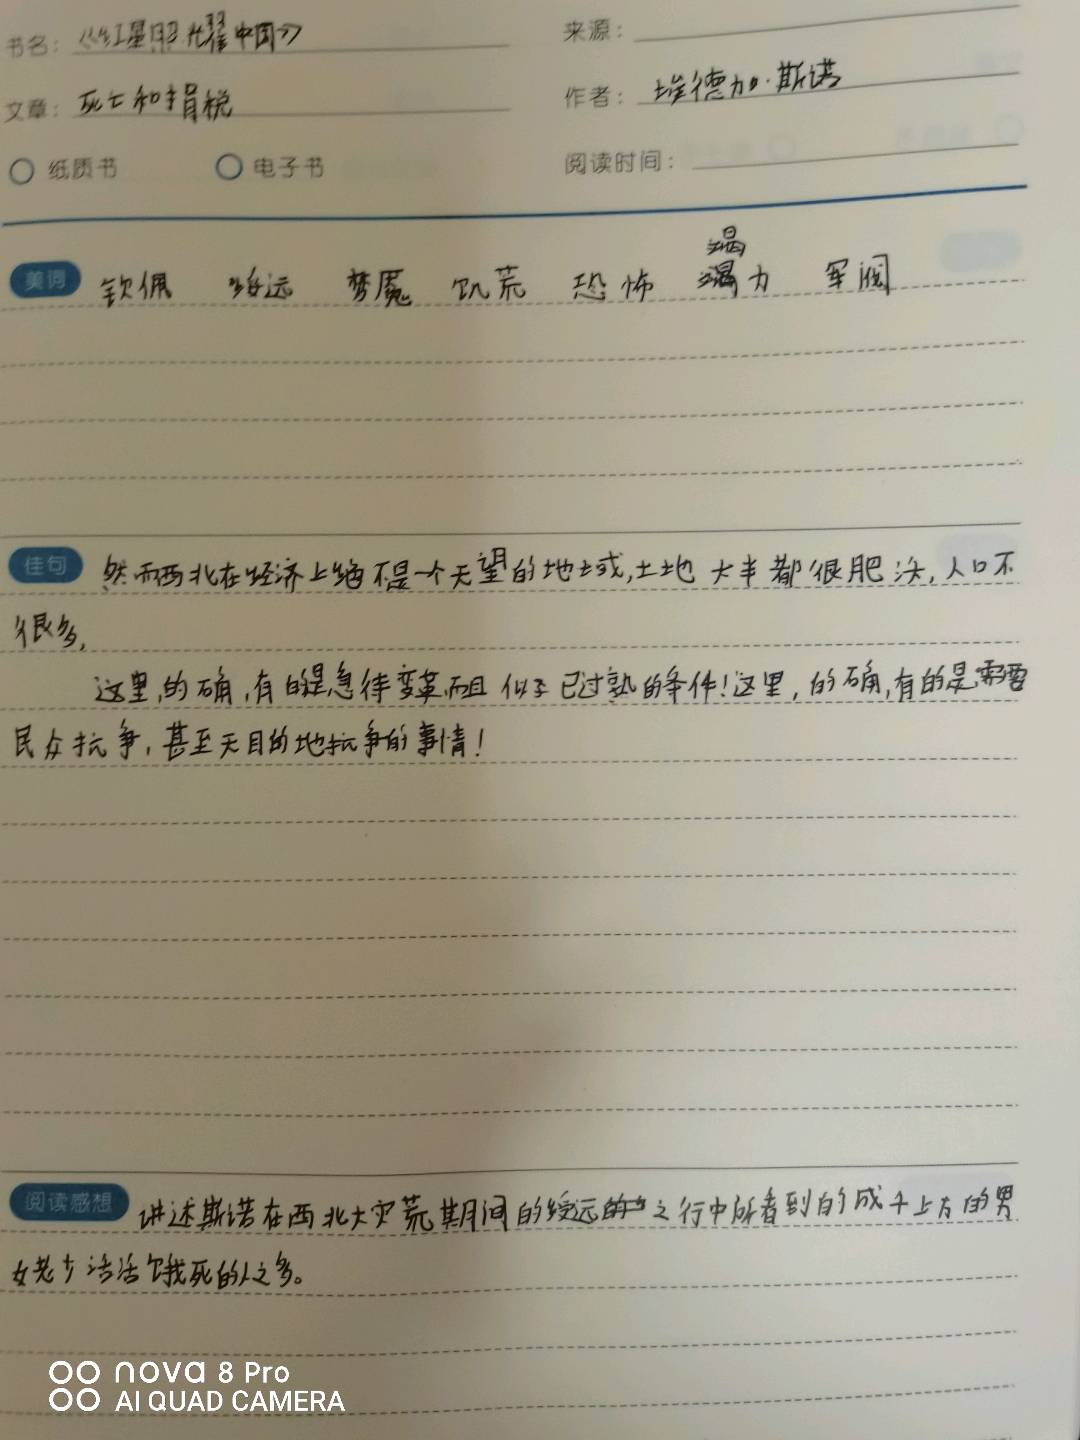 书名：《红星照耀中国》 来源：
文章：死亡和捐税 作者：埃德加·斯诺
纸质书 电子书 阅读时间：
渴
美词 钦佩 绥远 梦魇 饥荒 恐怖 力 军阀
佳句 然而西北在经济上绝不是一个无望的地域,土地大半都很肥沃,人口不
很多,
这里,的确,有的是急待变革,而且似乎已过熟的条件!这里,的确,有的是需要
民众抗争,甚至无目的地抗争的事情!
阅读感想 讲述斯诺在西北大灾荒期间的绥远之行中所看到的成千上万的男
女老少活活饿死的人之多。
nova 8 Pro
AI QUAD CAMERA